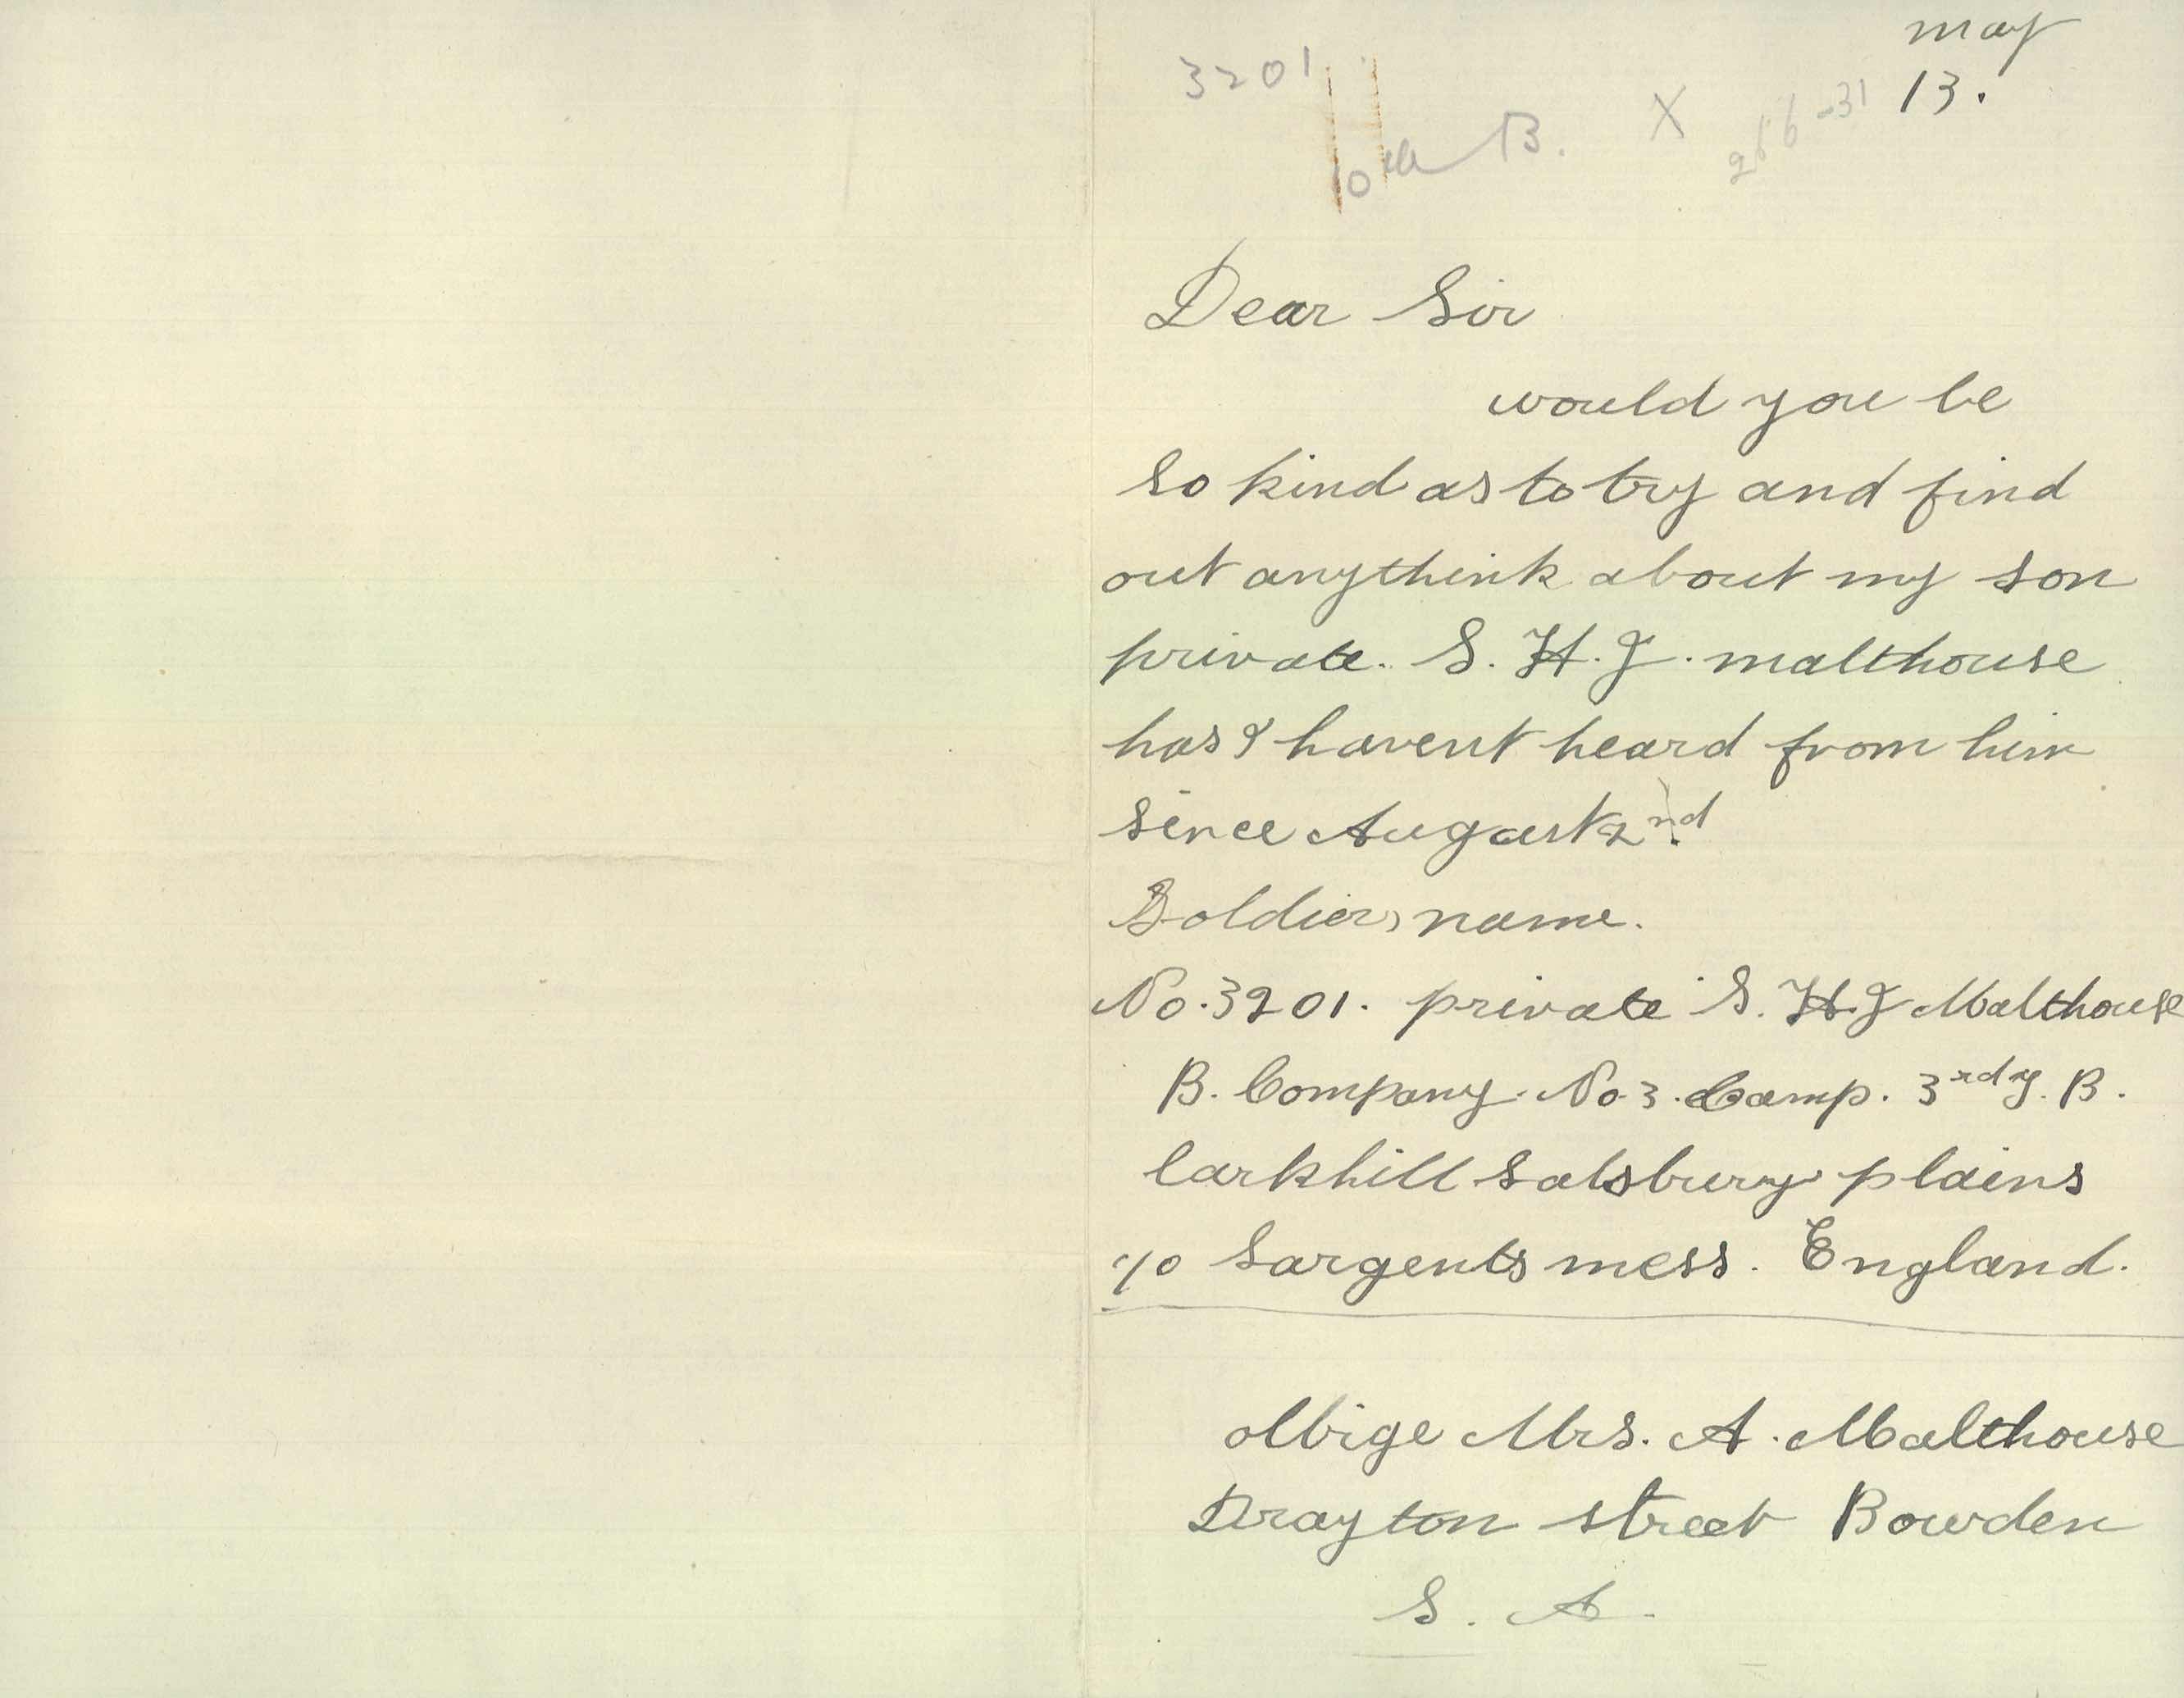 may
3201
13.
10th B. X
Dear Sir
would you be
so kind as to try and find
out anythink about my son
private. S. H. J. malthouse
has I havent heard from him
since August 2nd.
Soldiers name.
No. 3201. private S. H. J Malthouse
B. Company. No 3. Camp. 3rd J. B.
larkhill Salsbury plains
c/o Sargents mess. England.
oblige Mrs. A. Malthouse
Drayton street Bowden
S. A.